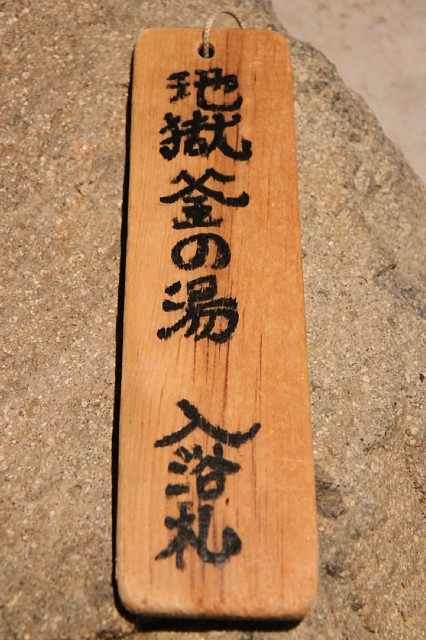 地獄釜の湯 入浴札